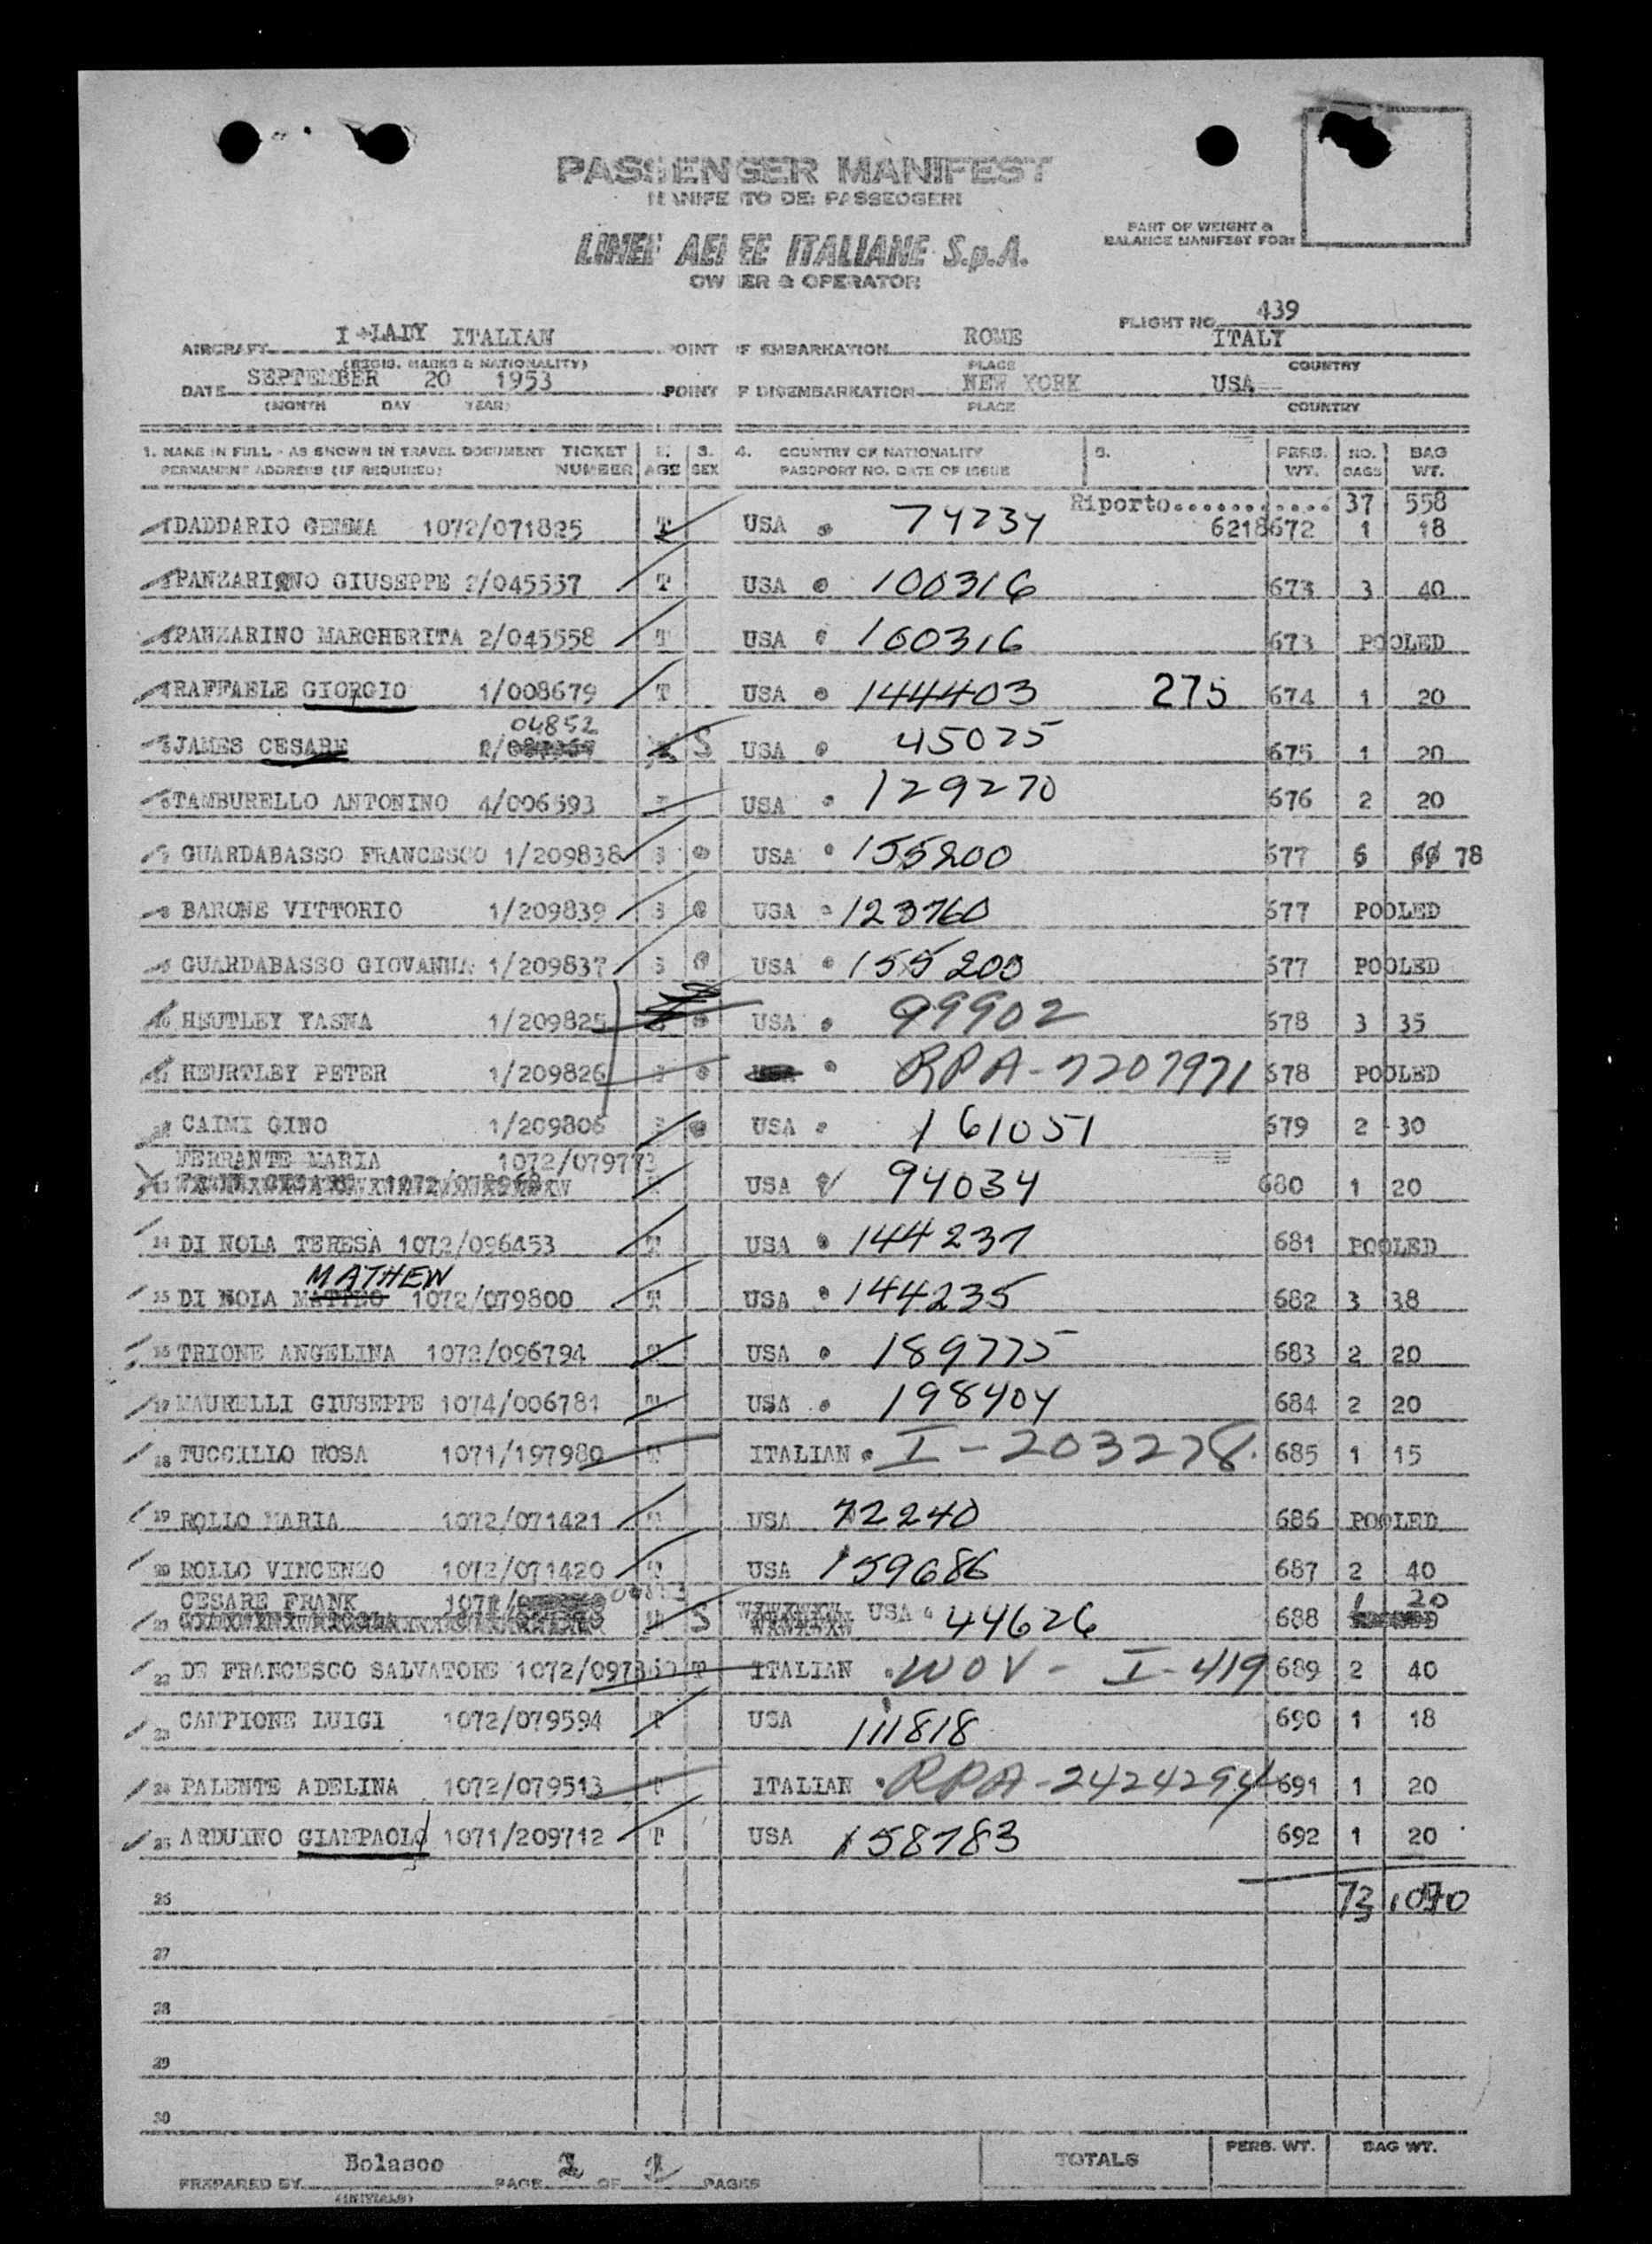 PASSENGER MANIFEST
MANIFESTO DEI PASSEGGERI
LINEE AEREE ITALIANE S.p.A.
OWNER & OPERATOR
PART OF WEIGHT &
BALANCE MANIFEST FOR:
FLIGHT NO. 439
AIRCRAFT I-LADY ITALIAN POINT OF EMBARKATION ROME ITALY
(REGIS. MARKS & NATIONALITY) PLACE COUNTRY
DATE SEPTEMBER 20 1953 POINT OF DISEMBARKATION NEW YORK USA
(MONTH DAY YEAR) PLACE COUNTRY
1. NAME IN FULL - AS SHOWN IN TRAVEL DOCUMENT TICKET 2. 3. 4. COUNTRY OF NATIONALITY 5. PERS. NO. BAG
PERMANENT ADDRESS (IF REQUIRED) NUMBER AGE SEX PASSPORT NO. DATE OF ISSUE WT. BAGS WT.
Riporto............ 37 558
1 DADDARIO GEMMA 1072/071825 T USA 74234 6218672 1 18
2 PANZARINO GIUSEPPE 2/045557 T USA 100316 673 3 40
3 PANZARINO MARGHERITA 2/045558 T USA 100316 673 POOLED
4 RAFFAELE GIORGIO 1/008679 T USA 144403 275 674 1 20
04852
5 JAMES CESARE S USA 45025 675 1 20
6 TAMBURELLO ANTONINO 4/006593 T USA 129270 676 2 20
7 GUARDABASSO FRANCESCO 1/209838 S USA 155200 677 6 78
8 BARONE VITTORIO 1/209839 S USA 123760 677 POOLED
9 GUARDABASSO GIOVANNA 1/209837 S USA 155200 677 POOLED
10 HEUTLEY YASNA 1/209825 USA 99902 678 3 35
11 HEURTLEY PETER 1/209826 S RPA-7207971 678 POOLED
12 CAIMI GINO 1/209806 S USA 161051 679 2 30
FERRANTE MARIA 1072/079773
13 USA 94034 680 1 20
14 DI NOLA TERESA 1072/096453 T USA 144237 681 POOLED
MATHEW
15 DI NOLA MATTEO 1072/079800 T USA 144235 682 3 38
16 TRIONE ANGELINA 1072/096794 T USA 189775 683 2 20
17 MAURELLI GIUSEPPE 1074/006781 T USA 198404 684 2 20
18 TUCCILLO ROSA 1071/197980 T ITALIAN I-203278 685 1 15
19 ROLLO MARIA 1072/071421 T USA 72240 686 POOLED
20 ROLLO VINCENZO 1072/071420 T USA 159686 687 2 40
CESARE FRANK 1 20
21 S USA 44626 688
22 DE FRANCESCO SALVATORE 1072/097860 T ITALIAN WOV - I-419 689 2 40
23 CAMPIONE LUIGI 1072/079594 T USA 111818 690 1 18
24 PALENTE ADELINA 1072/079513 T ITALIAN RPA-2424294 691 1 20
25 ARDUINO GIAMPAOLO 1071/209712 T USA 158783 692 1 20
26 73 1070
27
28
29
30
PREPARED BY Bolasco PAGE 2 OF PAGES TOTALS PERS. WT. BAG WT.
(INITIALS)